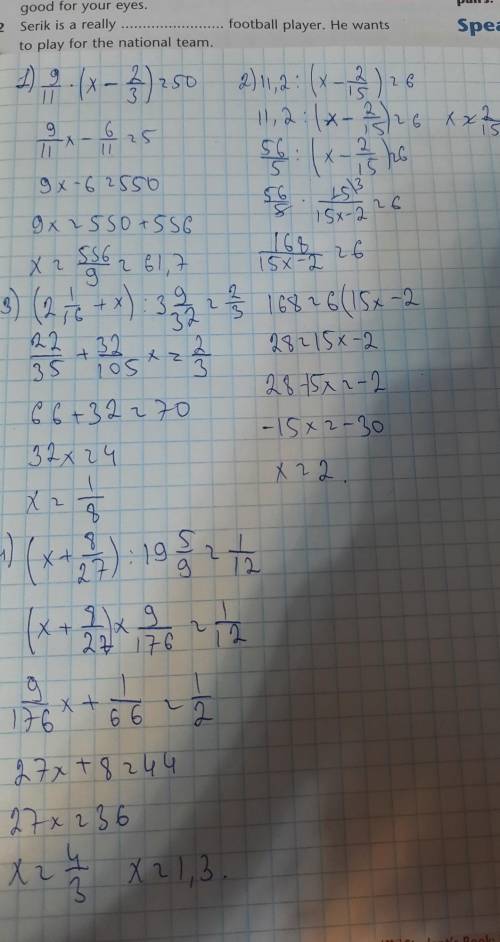 good for your eyes.
2 Serik is a really ........................ football player. He wants
to play for the national team.
pairs.
Spea
1) 9/11 · (x - 2/3) = 50
9/11 x - 6/11 = 5
9x - 6 = 550
9x = 550 + 556
x = 556/9 = 61,7
2) 11,2 : (x - 2/15) = 6
11,2 : (x - 2/15) = 6 x ≠ 2/15
56/5 : (x - 2/15) = 6
56/5 · 15/15x-2 = 6
168/15x-2 = 6
168 = 6(15x - 2
28 = 15x - 2
28 - 15x = -2
-15x = -30
x = 2.
3) (2 1/16 + x) : 3 9/32 = 2/3
22/35 + 32/105 x = 2/3
66 + 32 = 70
32x = 4
x = 1/8
4) (x + 8/27) : 19 5/9 = 1/12
(x + 8/27) x 9/176 = 1/12
9/176 x + 1/66 = 1/2
27x + 8 = 44
27x = 36
x = 4/3 x = 1,3.